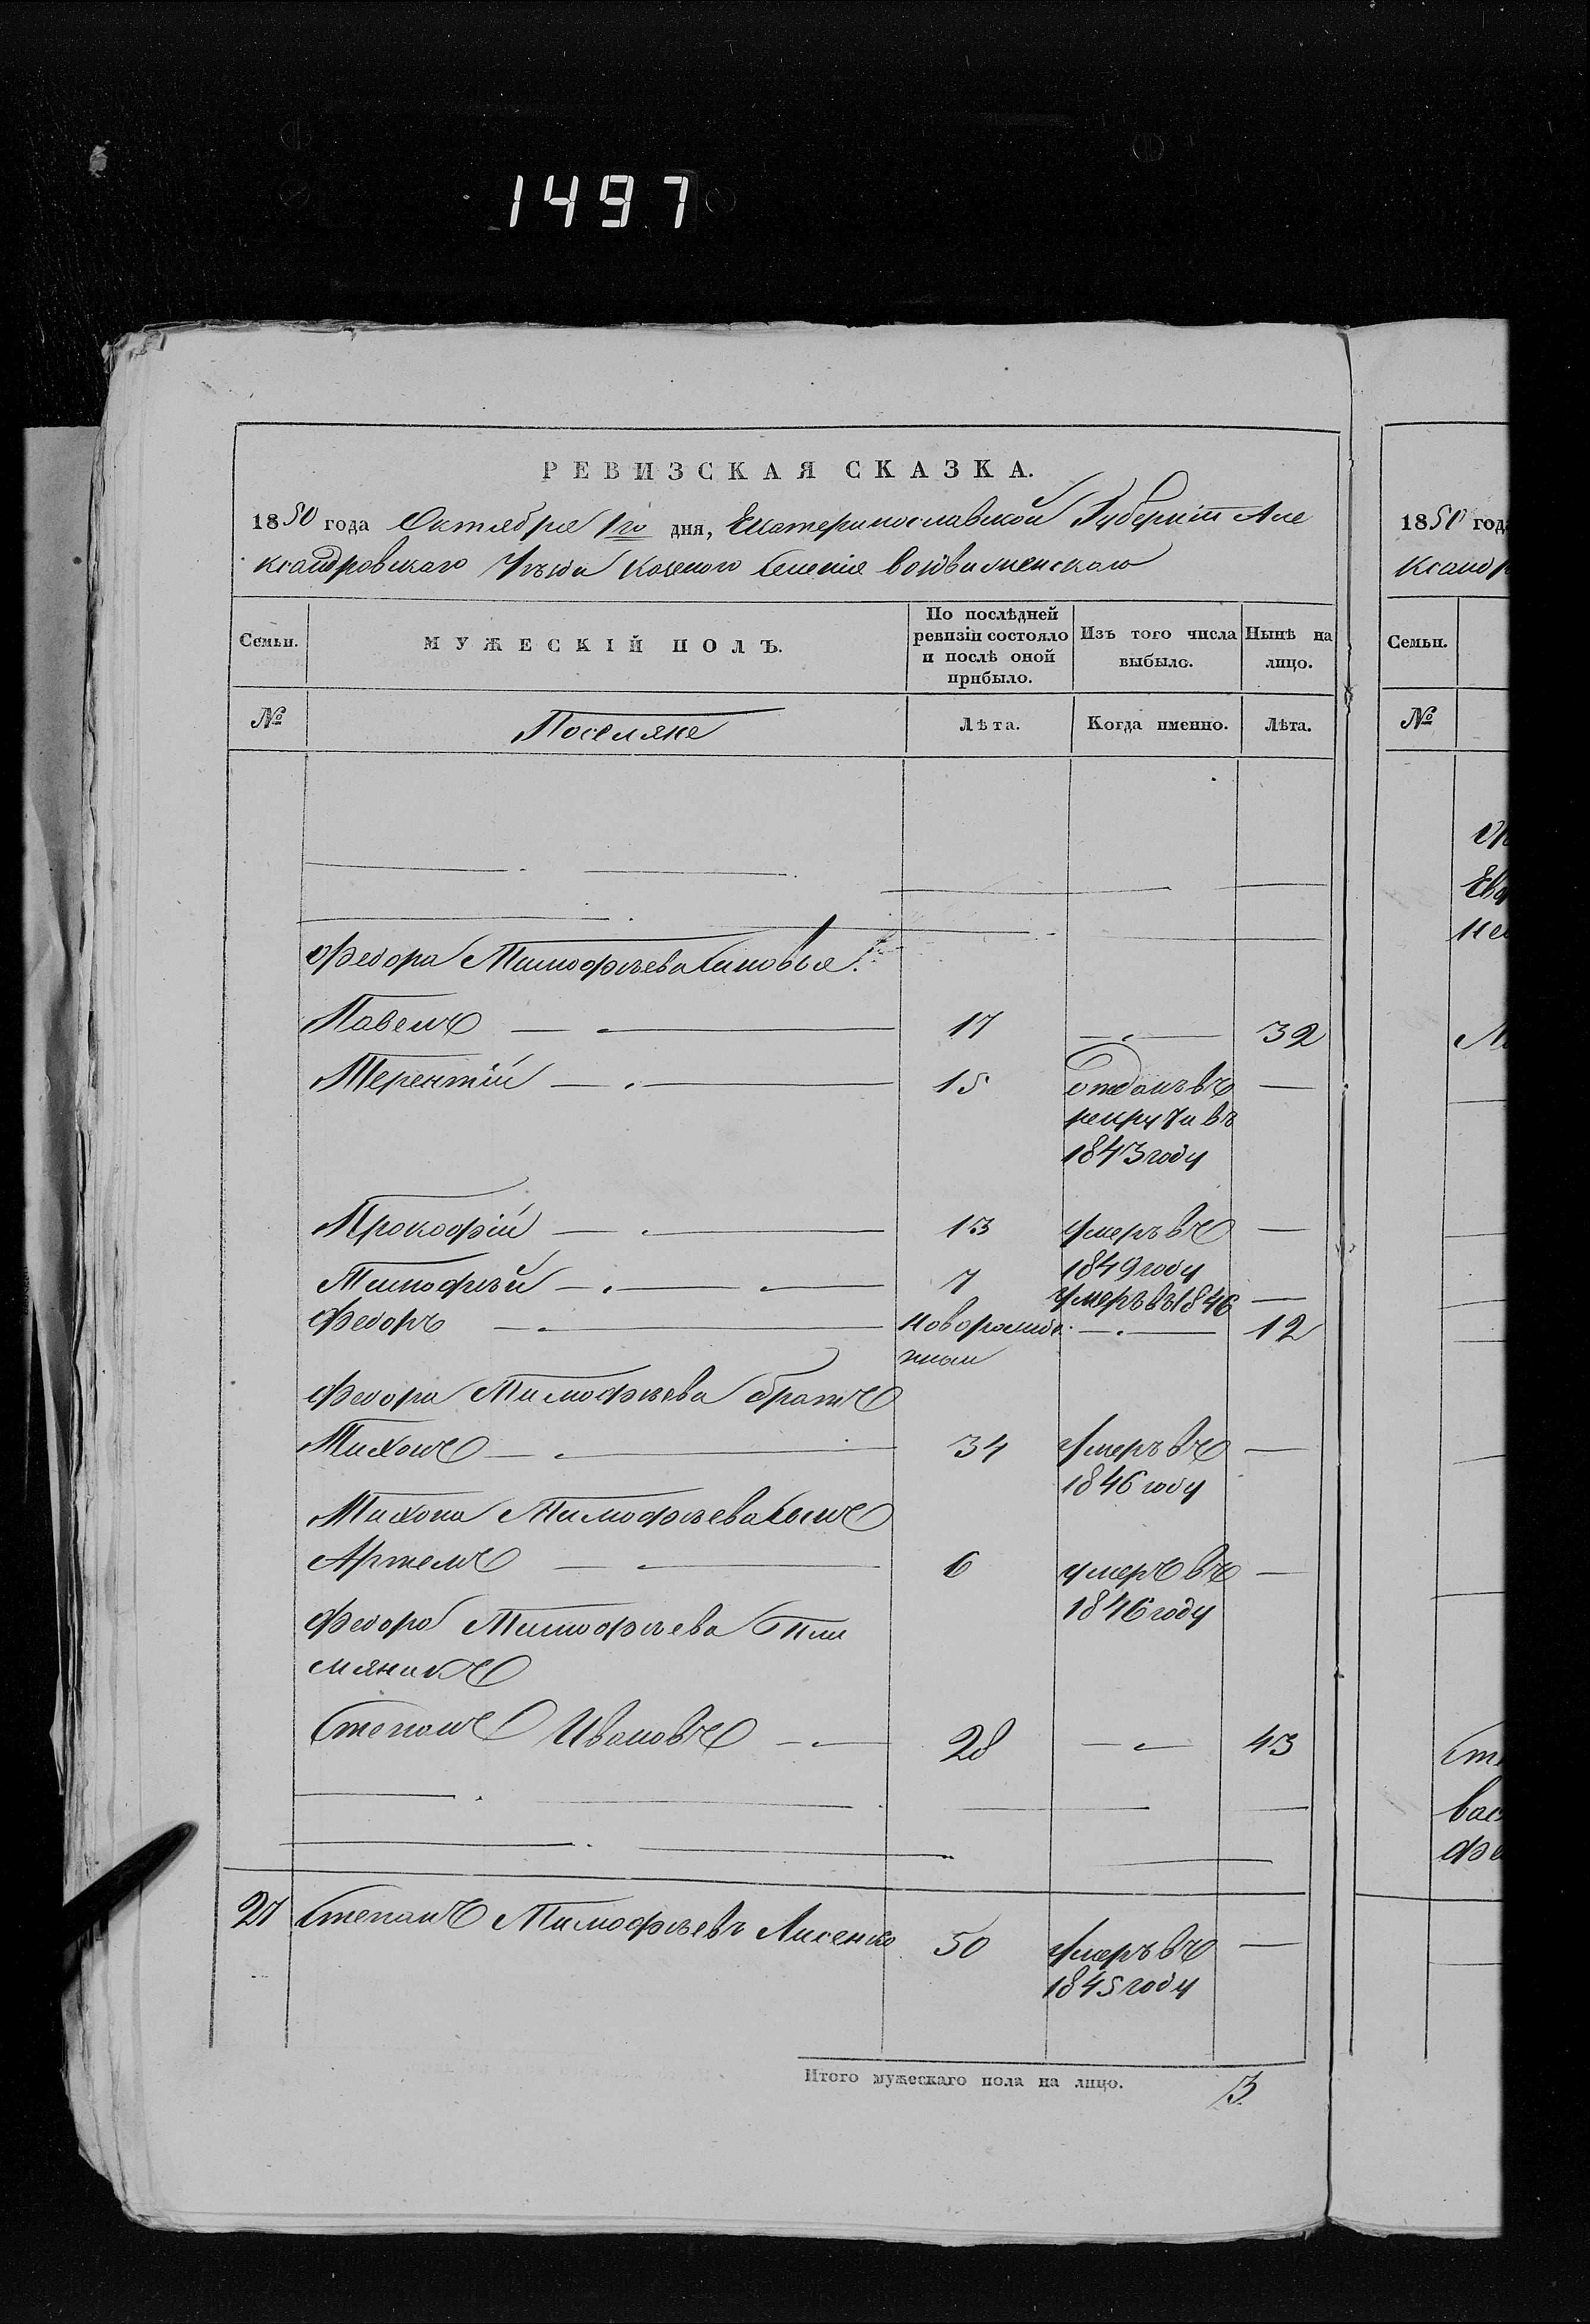 1497
РЕВИЗСКАЯ СКАЗКА.
1850 года Октября 1го дня, Екатеринославской Губерніи Але
ксандровскаго Уѣзда Казеного Селенія Воздвиженскаго
Семьи.
МУЖЕСКІЙ ПОЛЪ.
По послѣдней ревизіи состояло и послѣ оной прибыло.
Изъ того числа выбыло.
Нынѣ на лицо.
№ Поселяне Лѣта. Когда именно. Лѣта.
Федора Тимофѣева Синовья:
Павелъ — 17 — 32
Терентій — 15 Отданъ въ —
рекруты въ
1843 году
Прокофій — 13 Умеръ въ —
1849 году
Тимофѣй — 7 Умеръ въ 1846 —
Федоръ — Новорожде — 12
нный
Федора Тимофѣева братъ
Тихонъ — 34 Умеръ въ —
1846 году
Тихона Тимофѣева Сынъ
Артемъ — 6 умеръ въ —
1846 году
Федора Тимофѣева Пле
мяникъ
Степанъ Ивановъ — 28 — 43
21 Степанъ Тимофѣевъ Лисенко 50 Умеръ въ —
1845 году
Итого мужескаго пола на лицо. 3
1850 год
ксандр
Семьи.
№
Ев
Сте
Вас
Фе